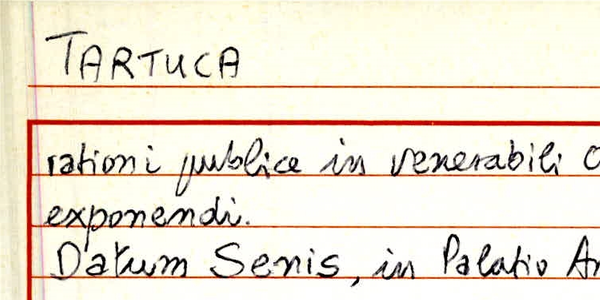 TARTUCA
rationi publice in venerabili
exponendi.
Datum Senis, in Palatio